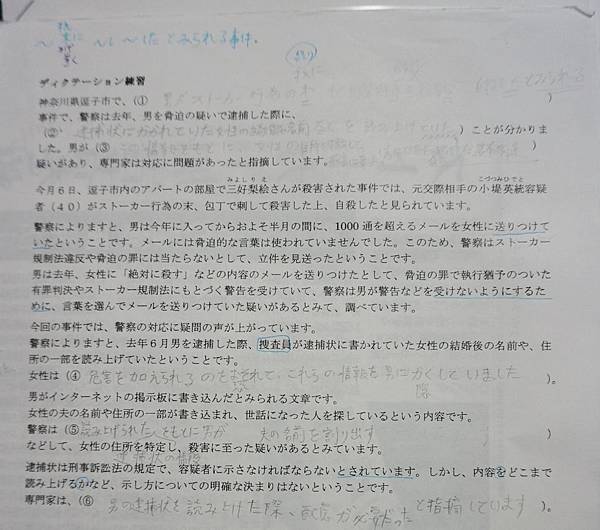 ~ ~い~したとみられる事件。
ディクテーション練習
神奈川県逗子市で、(① 男がストーカー行為の末 )
事件で、警察は去年、男を脅迫の疑いで逮捕した際に、
(② 逮捕状に書かれていた女性の結婚後の名前などを読み上げていた )ことが分かりま
した。男が(③ )
疑いがあり、専門家は対応に問題があったと指摘しています。
今月6日、逗子市内のアパートの部屋で三好梨絵さんが殺害された事件では、元交際相手の小堤英統容疑
みよしりえ こづつみひでと
者(40)がストーカー行為の末、包丁で刺して殺害した上、自殺したと見られています。
警察によりますと、男は今年に入ってからおよそ半月の間に、1000通を超えるメールを女性に送りつけて
いたということです。メールには脅迫的な言葉は使われていませんでした。このため、警察はストーカー
規制法違反や脅迫の罪には当たらないとして、立件を見送ったということです。
男は去年、女性に「絶対に殺す」などの内容のメールを送りつけたとして、脅迫の罪で執行猶予のついた
有罪判決やストーカー規制法にもとづく警告を受けていて、警察は男が警告などを受けないようにするた
めに、言葉を選んでメールを送りつけていた疑いがあるとみて、調べています。
今回の事件では、警察の対応に疑問の声が上がっています。
警察によりますと、去年6月男を逮捕した際、捜査員が逮捕状に書かれていた女性の結婚後の名前や、住
所の一部を読み上げていたということです。
女性は(④ 危害を加えられるのをおそれて、これらの情報を男にかくしていました )。
男がインターネットの掲示板に書き込んだとみられる文章です。
女性の夫の名前や住所の一部が書き込まれ、世話になった人を探しているという内容です。
警察は(⑤ 読み上げられた をもとに男が 夫の名前を割り出す )
などして、女性の住所を特定し、殺害に至った疑いがあるとみています。
逮捕状の情報
逮捕状は刑事訴訟法の規定で、容疑者に示さなければならないとされています。しかし、内容をどこまで
読み上げるかなど、示し方についての明確な決まりはないということです。
専門家は、(⑥ 男の逮捕状を読み上げた際、配慮が必要だったと指摘しています )。